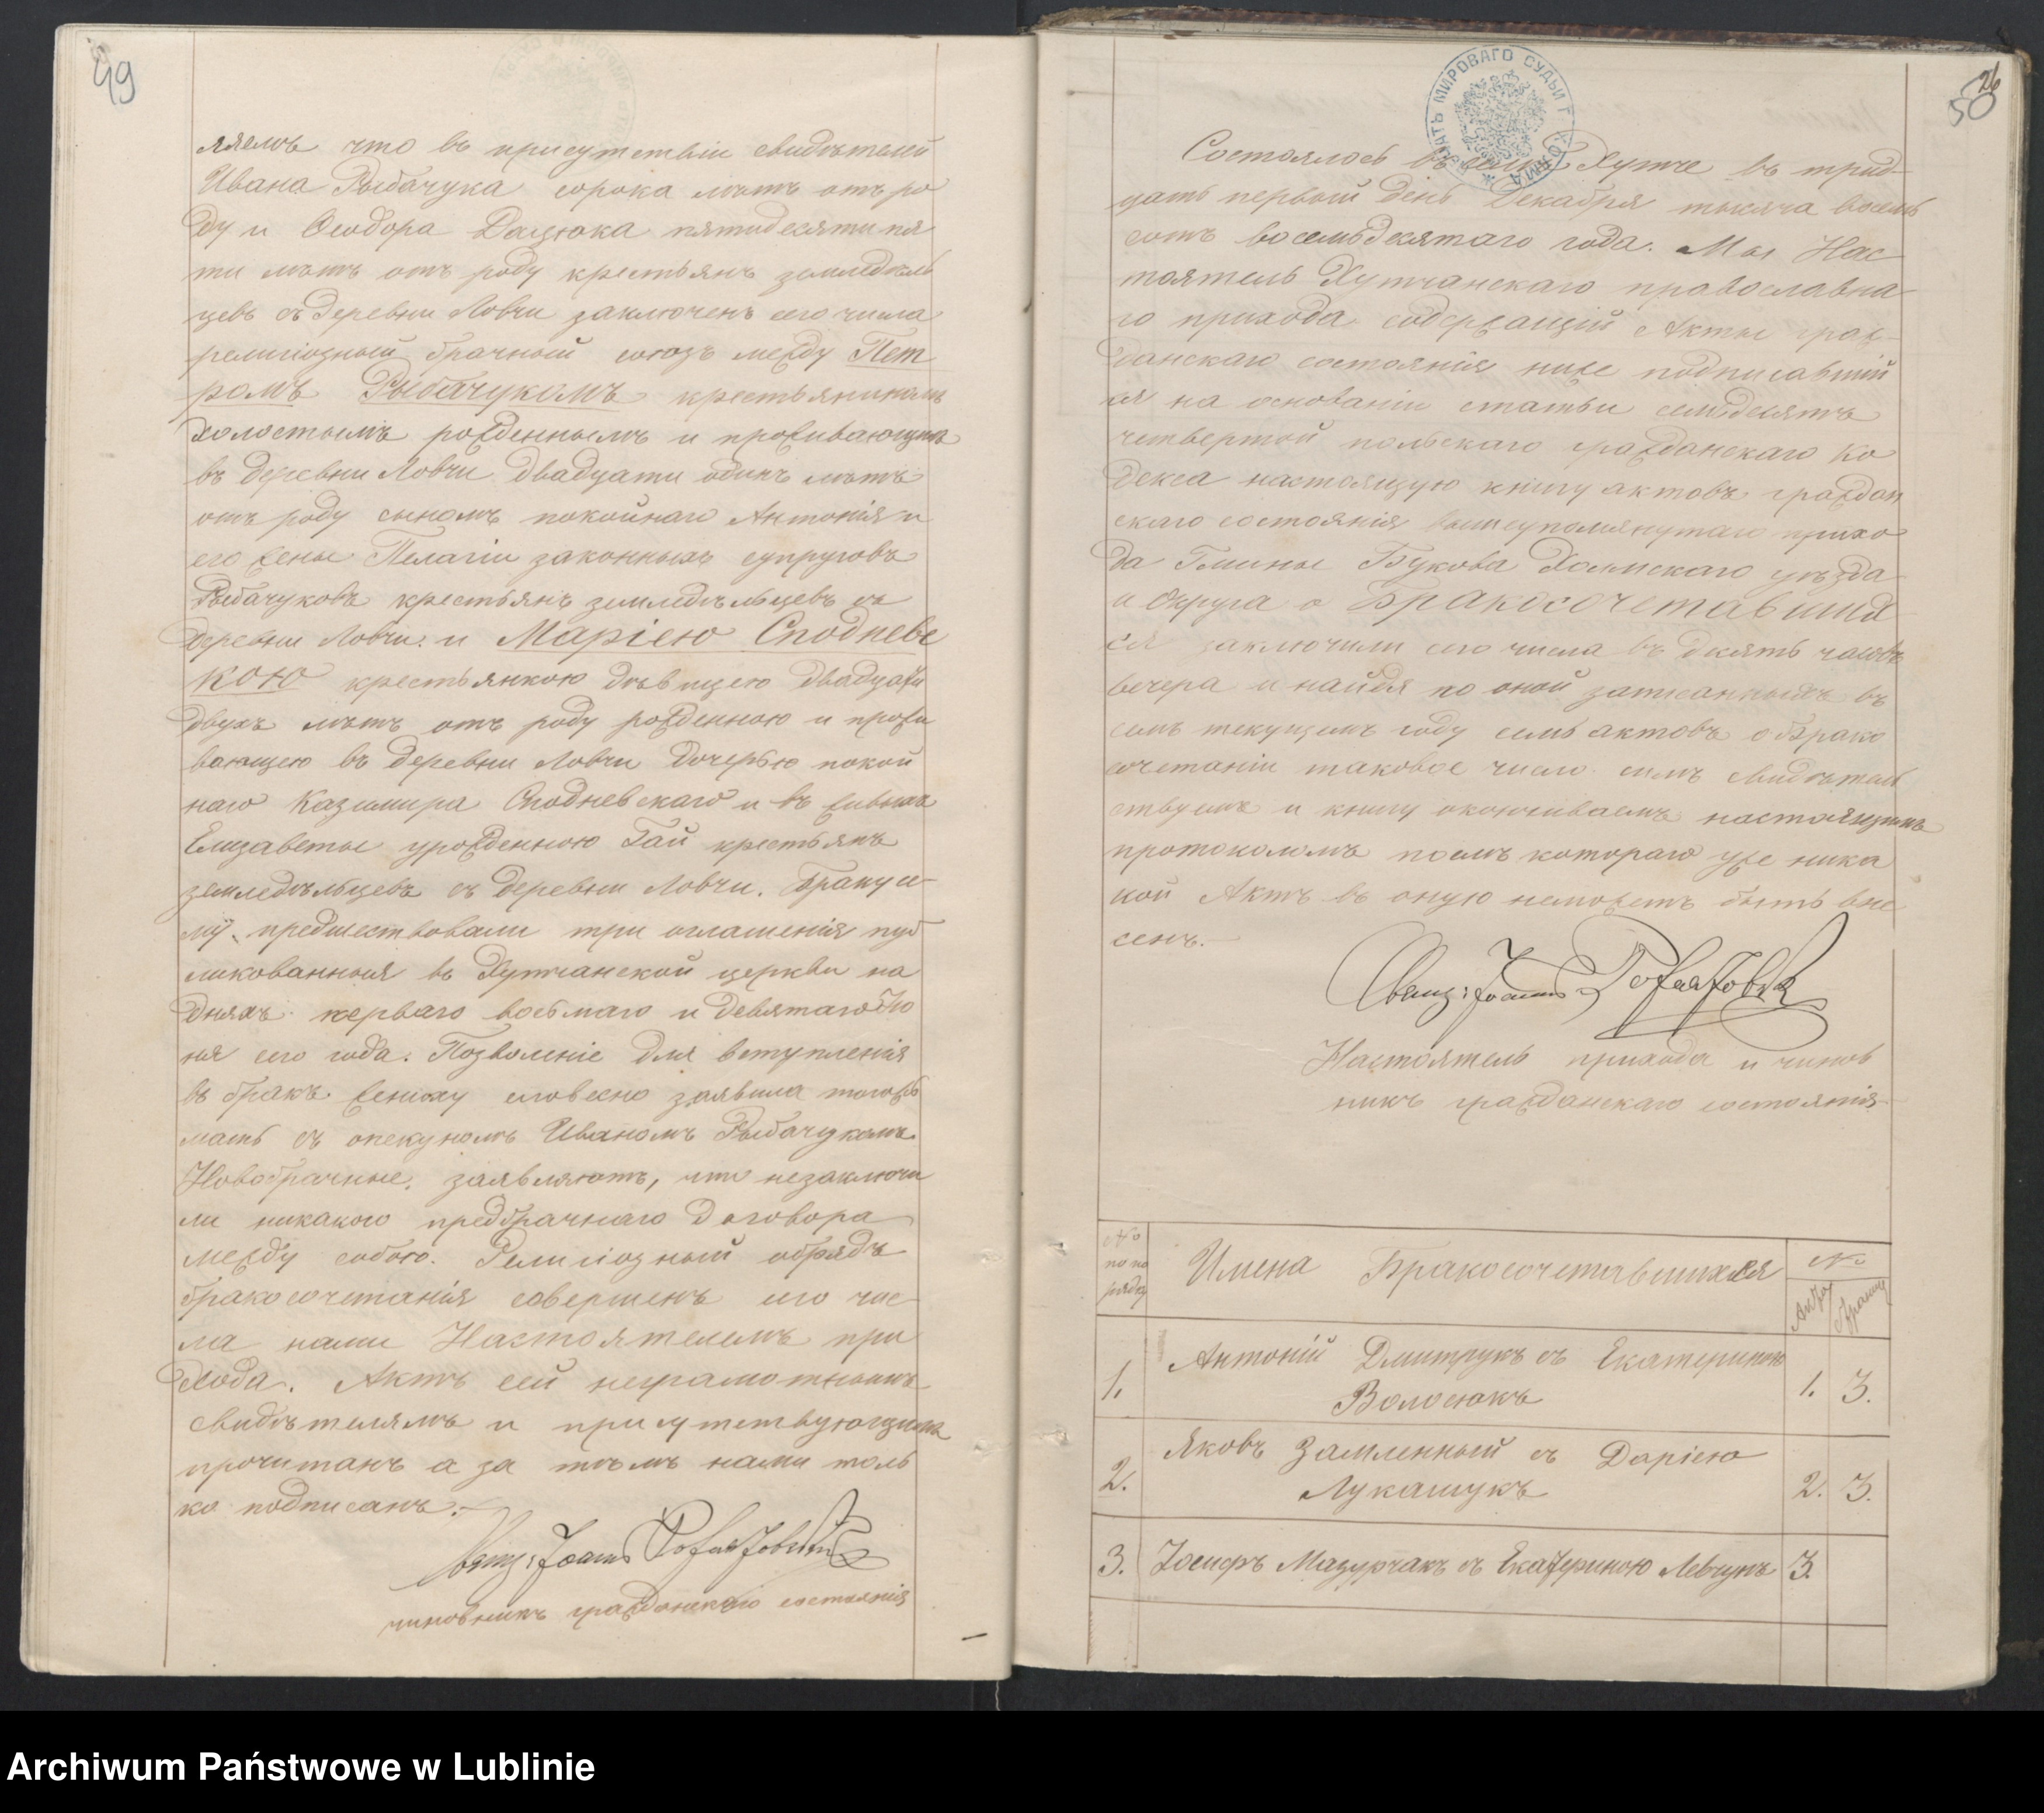 49
ляемъ что въ присутствіи свидѣтелей
Ивана Рыбачука сорока лѣтъ отъ ро
ду и Ѳеодора Дацюка пятидесяти пя
ти лѣтъ отъ роду крестьянъ земледѣль
цевъ съ деревни Ловчи заключенъ сего числа
религіозный брачный союзъ между Пет
ромъ Рыбачукомъ крестьяниномъ
холостымъ рожденнымъ и проживающимъ
въ деревни Ловчи двадцати одинъ лѣтъ
отъ роду сыномъ покойнаго Антонія и
его жены Пелагіи законныхъ супруговъ
Рыбачуковъ крестьянъ земледѣльцевъ съ
деревни Ловчи. и Маріею Сподневс
кою крестьянкою дѣвицею двадцати
двухъ лѣтъ отъ роду рожденною и прожи
вающею въ деревни Ловчи дочерью покой
наго Казимира Сподневскаго и въ живыхъ
Елизаветы урожденною Гай крестьянъ
земледѣльцевъ съ деревни Ловчи. Браку се
му предшествовали три оглашенія пуб
ликованныя въ Хутчанской церкви на
дняхъ перваго восьмаго и девятаго Ію
ня сего года. Позволеніе для вступленія
въ бракъ жениху словесно заявила тогожъ
мать съ опекуномъ Иваномъ Рыбачукомъ.
Новобрачные. заявляютъ, что незаключи
ли никакого предбрачнаго договора
между собою. Религіозный обрядъ
бракосочетанія совершенъ сего чис
ла нами Настоятелемъ при
хода. Актъ сей неграмотнымъ
свидѣтелямъ и присутствующимъ
прочитанъ а за тѣмъ нами толь
ко подписанъ.
чиновникъ гражданскаго состоянія
26
50
Состоялось въ селѣ Хутче въ трид
цать первый день Декабря тысяча восемь
сотъ восемьдесятаго года. Мы Нас
тоятель Хутчанскаго православна
го прихода содержащій Акты граж
данскаго состоянія ниже подписавшій
ся на основаніи статьи семидесятъ
четвертой польскаго гражданскаго Ко
декса настоящую книгу актовъ граждан
скаго состоянія вышеупомянутаго прихо
да Гмины Букова Холмскаго уѣзда
и округа о Бракосочетавших
ся заключили сего числа въ десять часовъ
вечера и найдя по оной записанныхъ въ
семъ текущемъ году семь актовъ о Брако
сочетаніи таковое число симъ свидѣтель
ствуемъ и книгу окончиваемъ настоящимъ
протоколомъ послѣ котораго уже ника
кой Актъ въ оную неможетъ быть вне
сенъ.
Настоятель прихода и чинов
никъ гражданскаго состоянія
No по по рядку
Имена Бракосочетавшихся
No
Акта
Страницы
1. Антоній Дмитрукъ съ Екатериною
Волосюкъ 1. 3.
2. Яковъ Замленный съ Даріею
Лукашукъ 2. 3.
3. Іосифъ Мазурчакъ съ Екатериною Левчукъ 3.
Archiwum Państwowe w Lublinie